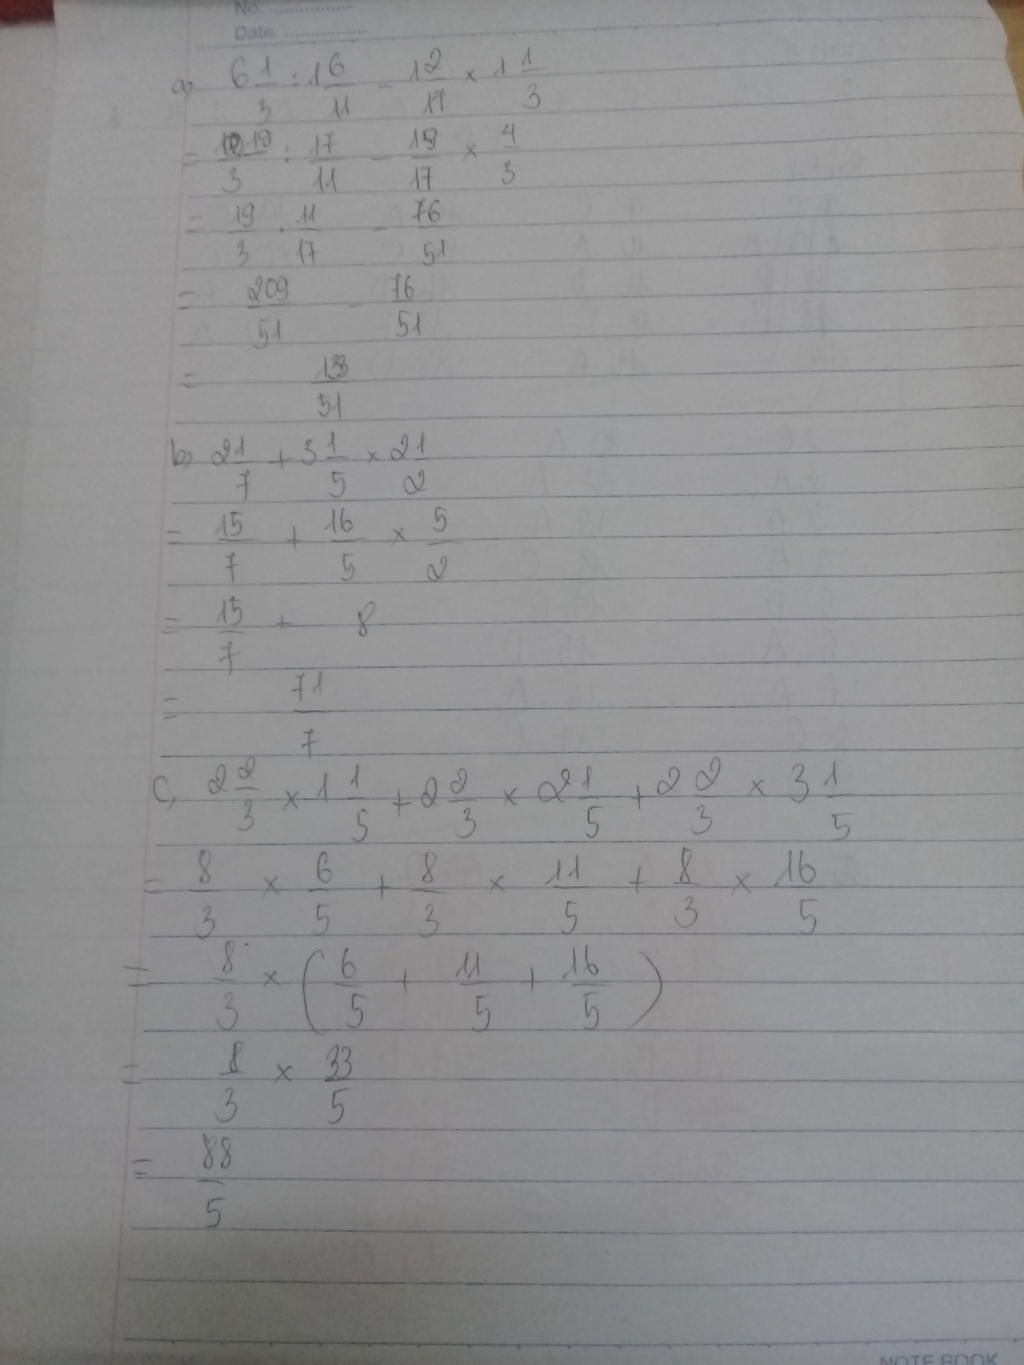 No. ................
Date. ................
a) 6 1/3 : 1 6/11 - 1 2/17 × 1 1/3
= 19/3 : 17/11 - 19/17 × 4/3
= 19/3 . 11/17 - 76/51
= 209/51 - 76/51
= 51
b) 2 1/7 + 3 1/5 × 2 1/2
= 15/7 + 16/5 × 5/2
= 15/7 + 8
= 71/7
c) 2 2/3 × 1 1/5 + 2 2/3 × 2 1/5 + 2 2/3 × 3 1/5
= 8/3 × 6/5 + 8/3 × 11/5 + 8/3 × 16/5
= 8/3 × ( 6/5 + 11/5 + 16/5 )
= 8/3 × 33/5
= 88/5
NOTE BOOK